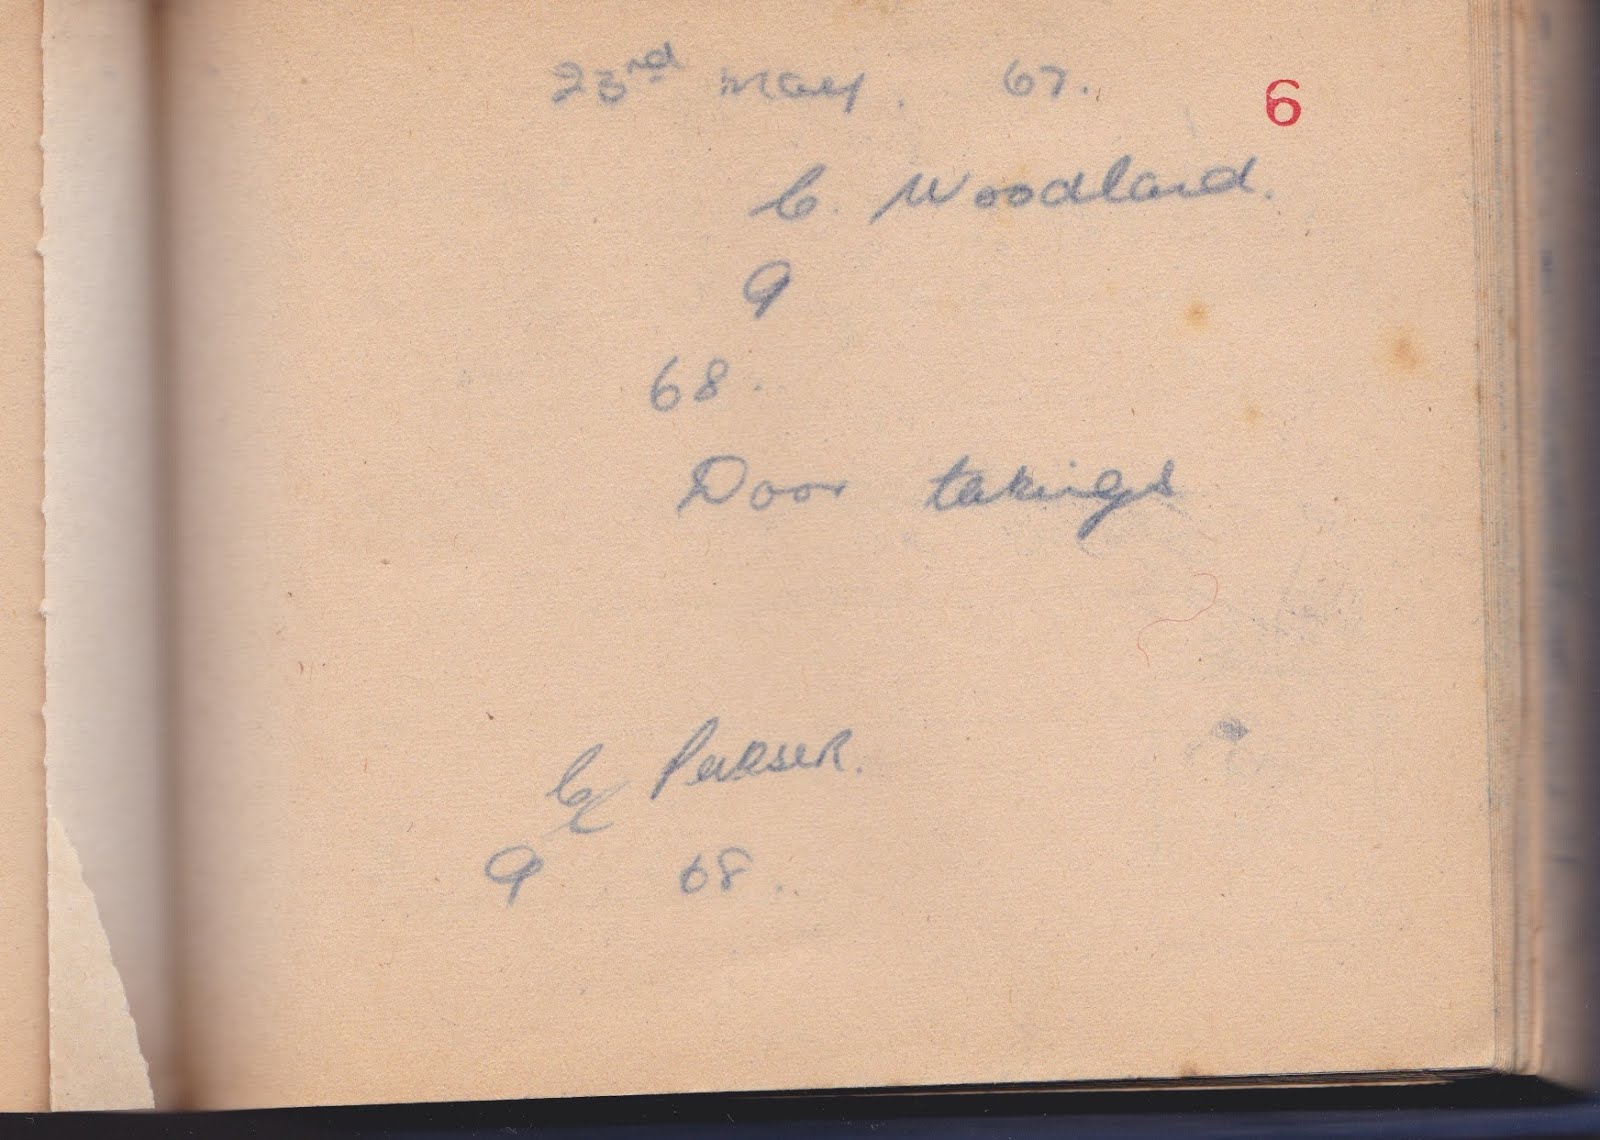 23rd May. 67.
6
C. Woodland.
9
68.
Door takings
C Purser.
9 68.